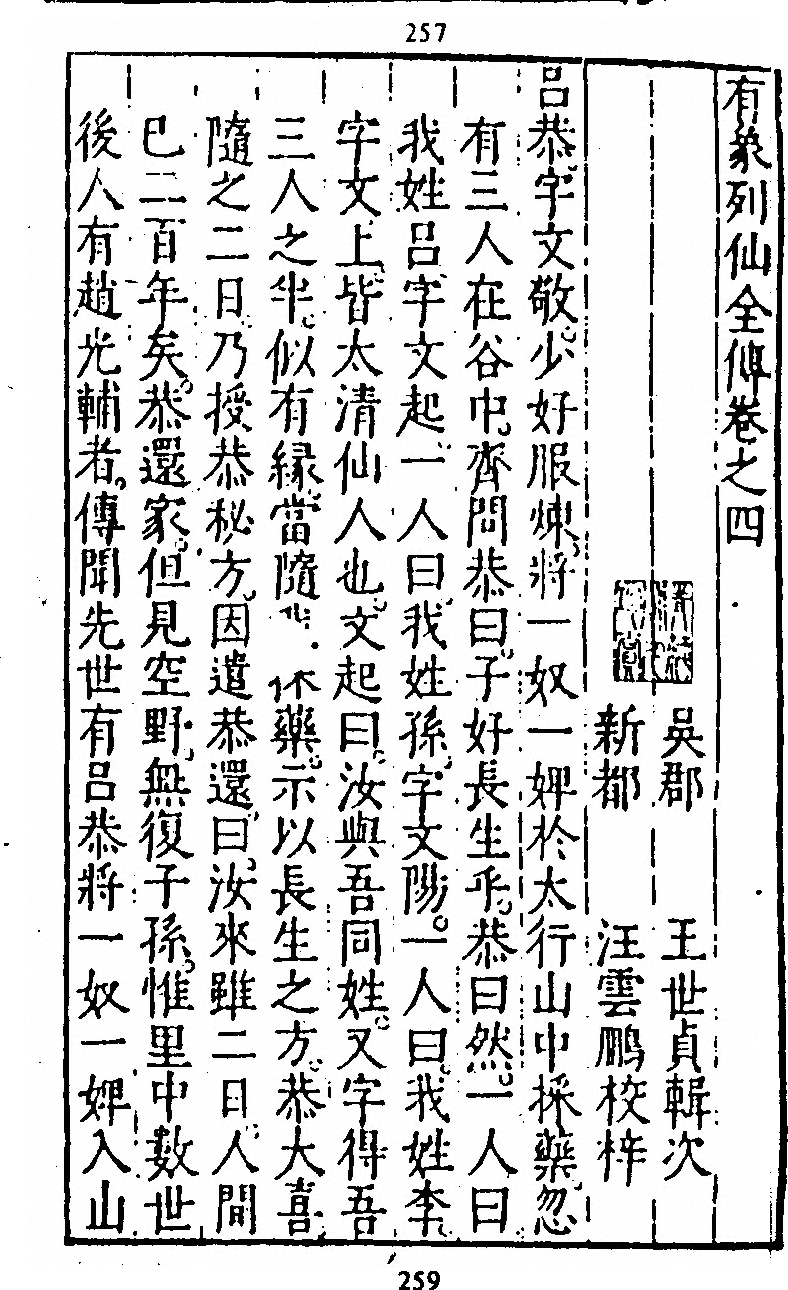 257
有象列仙全傳卷之四
吳郡 王世貞輯次
新都 汪雲鵬校梓
呂恭字文敬。少好服煉。將一奴一婢於太行山中採藥。忽
有三人在谷中。齊問恭曰。子好長生乎。恭曰然。一人曰
我姓呂字文起。一人曰。我姓孫。字文陽。一人曰。我姓李。
字文上。皆太清仙人也。文起曰。汝與吾同姓。又字得吾
三人之半。似有緣。當隨 藥。示以長生之方。恭大喜
隨之二日。乃授恭秘方。因遣恭還。曰。汝來雖二日。人間
已二百年矣。恭還家。但見空野。無復子孫。惟里中數世
後人有趙光輔者。傳聞先世有呂恭將一奴一婢入山
259